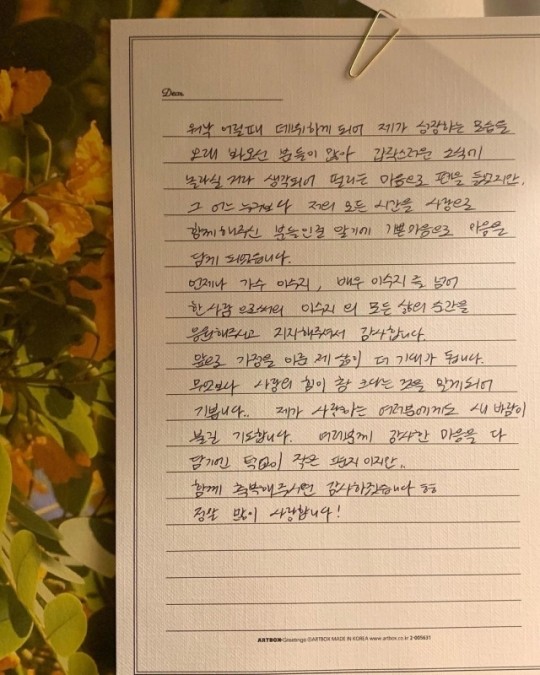 Dear.
워낙 어릴때 데뷔하게 되어 제가 성장하는 모습을
오래 봐오신 분들이 많아 갑작스러운 소식에
놀라실 거라 생각되어 떨리는 마음으로 펜을 들었지만,
그 어느 누구보다 저의 모든 시간을 사랑으로
함께해주신 분들인걸 알기에 기쁜마음으로 마음을
담게 되었습니다.
언제나 가수 이수지, 배우 이수지를 넘어
한 사람 으로써의 이수지 의 모든 삶의 순간을
응원해주시고 지지해주셔서 감사합니다.
앞으로 가정을 이룬 제 삶이 더 기대가 됩니다.
무엇보다 사랑의 힘이 참 크다는 것을 알게되어
기쁩니다.. 제가 사랑하는 여러분에게도 새 바람이
불길 기도합니다. 여러분께 감사한 마음을 다
담기엔 턱없이 작은 편지 이지만..
함께 축복해주시면 감사하겠습니다 ㅎㅎ
정말 많이 사랑합니다!
ARTBOX Greetings ©ARTBOX MADE IN KOREA www.artbox.co.kr 2-005631